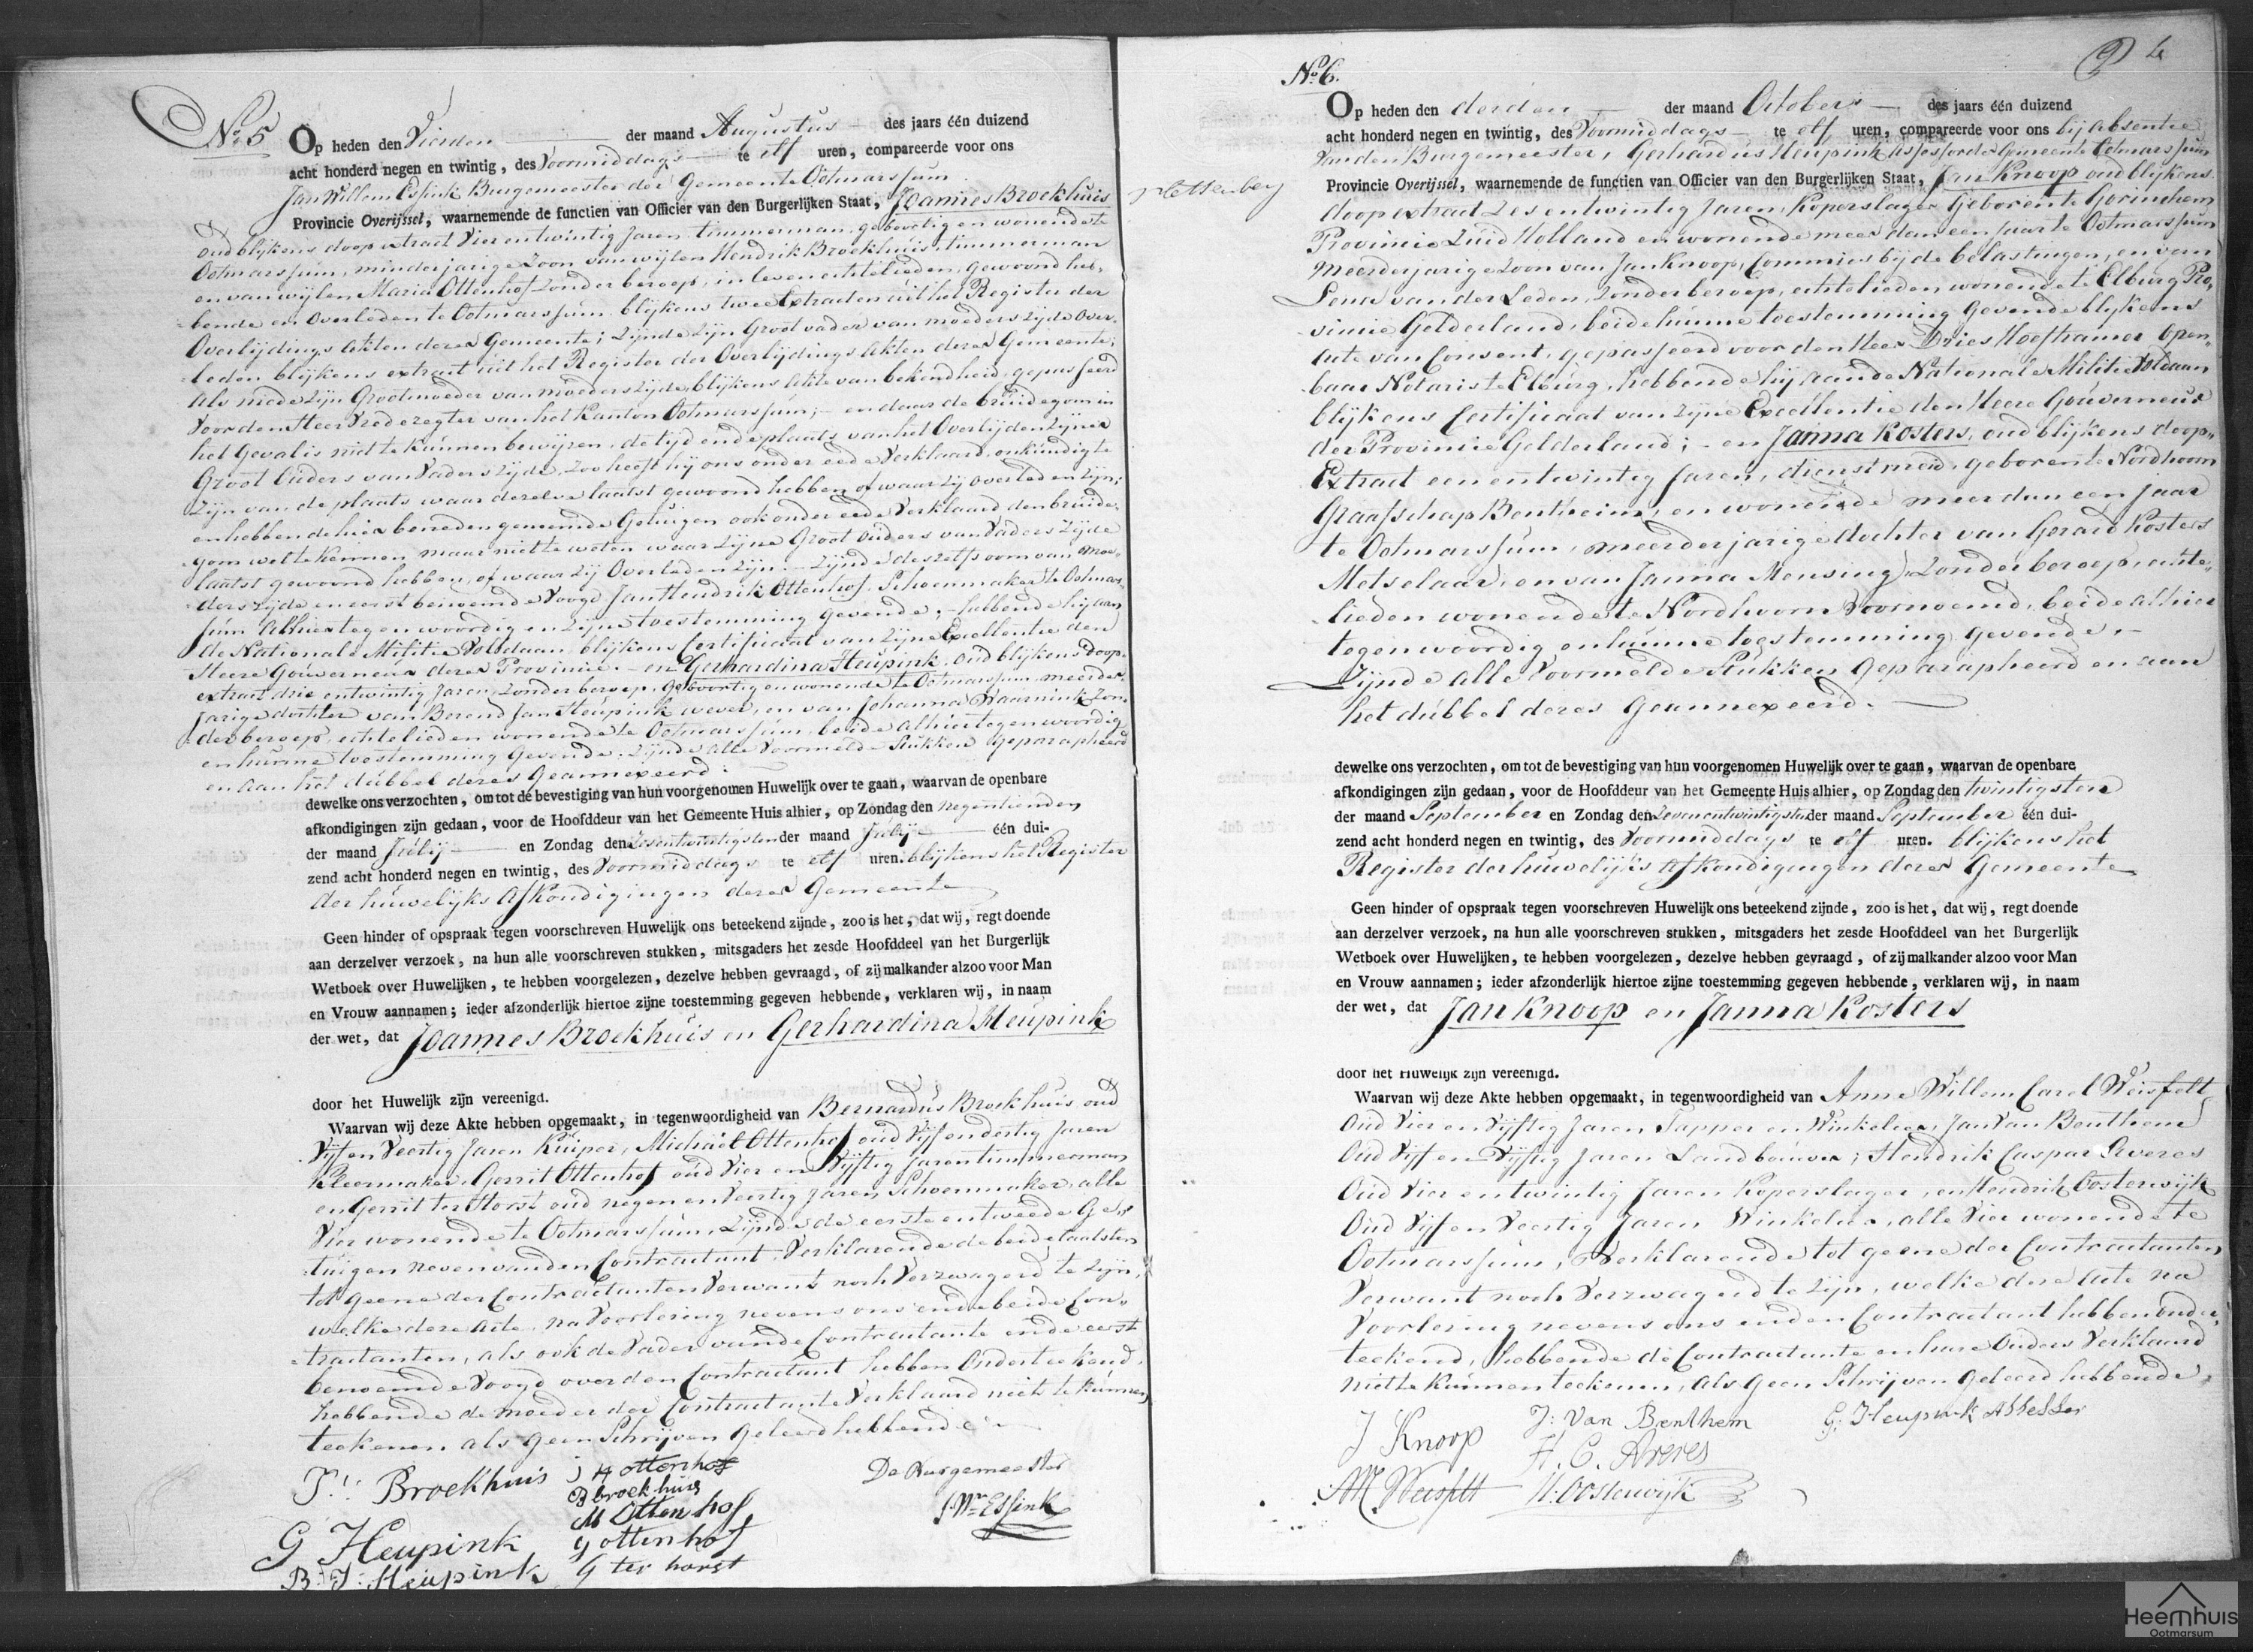 No 5
Op heden den Vierden der maand Augustus des jaars één duizend
acht honderd negen en twintig, des Voormiddags te elf uren, compareerde voor ons
Jan Willem Essink Burgemeester der Gemeente Ootmarssum
Provincie Overijssel, waarnemende de functien van Officier van den Burgerlijken Staat, Joannes Broekhuis
oud blijkens doop extract Vier en twintig Jaren, timmerman, geboortig en wonende te
Ootmarssum, minderjarige Zoon van wijlen Hendrik Broekhuis, timmerman
en van wijlen Maria Ottenhof zonder beroep, in leven echtelieden, gewoond heb-
bende en Overleden te Ootmarssum blijkens twee Extracten uit het Register der
Overlijdings Akten dezer Gemeente; zijnde zijn Groot vader van moeders zijde Over-
leden blijkens extract uit het Register der Overlijdings Akten dezer Gemeente,
Als mede zijn Grootmoeder van moeders zijde, blijkens Akte van bekendheid, gepasseerd
Voor den Heer Vrederegter van het Kanton Ootmarssum; en daar de bruidegom in
het Geval is niet te kunnen bewijzen, de tijd en de plaats van het Overlijden zijner
Groot Ouders van Vaders zijde, zoo heeft hij ons onder eede Verklaard, onkundig te
zijn van de plaats waar dezelve laatst gewoond hebben of waar zij overleden zijn;
en hebben de hier beneden genoemde Getuigen ook onder eede Verklaard den bruide-
gom wel te kennen maar niet te weten waar zijne Groot Ouders van Vaders zijde
laatst gewoond hebben, of waar zij Overleden zijn. Zijnde deszelfs oom van moe-
ders zijde en eerst benoemde Voogd Jan Hendrik Ottenhof, Schoenmaker te Ootmars-
sum Alhier tegenwoordig en zijne toestemming gevende; hebbende hij aan
de Nationale Militie Voldaan blijkens Certificaat van zijne Excellentie den
Heere Gouverneur dezer Provincie. en Gerhardina Heupink, oud blijkens doop-
extract drie en twintig Jaren, zonder beroep, geboortig en wonende te Ootmarssum, meerder-
jarige dochter van Berend Jan Heupink wever, en van Johanna Waarnink zon-
der beroep, echtelieden wonende te Ootmarssum, beide alhier tegenwoordig
en hunne toestemming gevende. Zijnde alle Voormelde Stukken Geparapheerd
en aan het dubbel dezes Geannexeerd.
dewelke ons verzochten, om tot de bevestiging van hun voorgenomen Huwelijk over te gaan, waarvan de openbare
afkondigingen zijn gedaan, voor de Hoofddeur van het Gemeente Huis alhier, op Zondag den negentienden
der maand Julij en Zondag den zesentwintigsten der maand Julij één dui-
zend acht honderd negen en twintig, des Voormiddags te elf uren. blijkens het Register
der huwelijks Afkondigingen dezer Gemeente
Geen hinder of opspraak tegen voorschreven Huwelijk ons beteekend zijnde, zoo is het, dat wij, regt doende
aan derzelver verzoek, na hun alle voorschreven stukken, mitsgaders het zesde Hoofddeel van het Burgerlijk
Wetboek over Huwelijken, te hebben voorgelezen, dezelve hebben gevraagd, of zij malkander alzoo voor Man
en Vrouw aannamen; ieder afzonderlijk hiertoe zijne toestemming gegeven hebbende, verklaren wij, in naam
der wet, dat Joannes Broekhuis en Gerhardina Heupink
door het Huwelijk zijn vereenigd.
Waarvan wij deze Akte hebben opgemaakt, in tegenwoordigheid van Bernardus Broekhuis oud
Vijf en Veertig Jaren Kuiper, Michaël Ottenhof oud Vijf en dertig Jaren
Kleermaker, Gerrit Ottenhof oud Vier en Vijftig Jaren timmerman
en Gerrit ter Horst oud negen en Veertig Jaren, Schoenmaker, alle
Vier wonende te Ootmarssum, zijnde de eerste en tweede Ge-
tuigen neven van den Contractant, Verklarende de beide laatsten
tot geene der Contractanten Verwant noch Verzwagerd te zijn,
welke deze Acte, na Voorlezing nevens ons en de beide Con-
tractanten, als ook de Vader van de Contractante en de eerst
benoemde Voogd over den Contractant hebben Onderteekend,
hebbende de moeder der Contractante Verklaard niet te kunnen
teekenen, als geen Schrijven geleerd hebbende.
J. Broekhuis
J H ottenhof
B broekhuis
M Ottenhof
G ottenhof
G ter horst
G Heupink
B: J: Heupink
De Burgemeester
J. Wm Essink
No 6.
9
4
plettenberg
Op heden den derden der maand October des jaars één duizend
acht honderd negen en twintig, des Voormiddags te elf uren, compareerde voor ons bij Absentie
van den Burgemeester, Gerhardus Heupink Assessor der Gemeente Ootmarssum
Provincie Overijssel, waarnemende de functien van Officier van den Burgerlijken Staat, Jan Knoop oud blijkens
doop extract zes en twintig Jaren, Koperslager Geboren te Gorinchem
Provincie Zuid Holland en wonende meer dan een Jaar te Ootmarssum
Meerderjarige Zoon van Jan Knoop, Commies bij de belastingen, en van
Lena van der Leden, zonder beroep, echtelieden wonende te Elburg Pro-
vincie Gelderland, beide hunne toestemming gevende blijkens
Acte van Consent, gepasseerd voor den Heer Dries Hoefhamer Open-
baar Notaris te Elburg, hebbende hij aan de Nationale Militie Voldaan
blijkens Certificaat van zijne Excellentie den Heere Gouverneur
der Provincie Gelderland; en Janna Kosters, oud blijkens doop-
Extract een en twintig Jaren, dienstmeid, geboren te Nordhoorn
Graafschap Bentheim, en wonende meer dan een Jaar
te Ootmarssum, meerderjarige dochter van Gerard Kosters
Metselaar, en van Janna Mensing, zonder beroep, echte-
lieden wonende te Nordhoorn Voornoemd, beide alhier
tegenwoordig en hunne toestemming gevende.
Zijnde alle Voormelde Stukken Geparapheerd en aan
het dubbel dezes Geannexeerd.
dewelke ons verzochten, om tot de bevestiging van hun voorgenomen Huwelijk over te gaan, waarvan de openbare
afkondigingen zijn gedaan, voor de Hoofddeur van het Gemeente Huis alhier, op Zondag den twintigsten
der maand September en Zondag den Zevenentwintigsten der maand September één dui-
zend acht honderd negen en twintig, des Voormiddags te elf uren. blijkens het
Register der huwelijks Afkondigingen dezer Gemeente
Geen hinder of opspraak tegen voorschreven Huwelijk ons beteekend zijnde, zoo is het, dat wij, regt doende
aan derzelver verzoek, na hun alle voorschreven stukken, mitsgaders het zesde Hoofddeel van het Burgerlijk
Wetboek over Huwelijken, te hebben voorgelezen, dezelve hebben gevraagd, of zij malkander alzoo voor Man
en Vrouw aannamen; ieder afzonderlijk hiertoe zijne toestemming gegeven hebbende, verklaren wij, in naam
der wet, dat Jan Knoop en Janna Kosters
door het Huwelijk zijn vereenigd.
Waarvan wij deze Akte hebben opgemaakt, in tegenwoordigheid van Anne Willem Carel Weisfelt
Oud Vier en Vijftig Jaren Tapper en Winkelier, Jan Van Benthem
Oud Vijf en Vijftig Jaren Landbouwer; Hendrik Caspar Averes
Oud Vier en twintig Jaren Koperslager, en Hendrik Oosterwijk
Oud Vijf en Veertig Jaren Winkelier, alle Vier wonende te
Ootmarssum, Verklarende tot geene der Contractanten
Verwant noch Verzwagerd te zijn, welke deze Acte na
Voorlezing nevens ons en den Contractant hebben onder-
teekend, hebbende de Contractante en hare Ouders Verklaard
niet te kunnen teekenen, als geen Schrijven geleerd hebbende.
J Knoop
J: Van Benthem
G: Heupink Assessor
H. C. Averes
H: Oosterwijk
Heemhuis
Ootmarsum